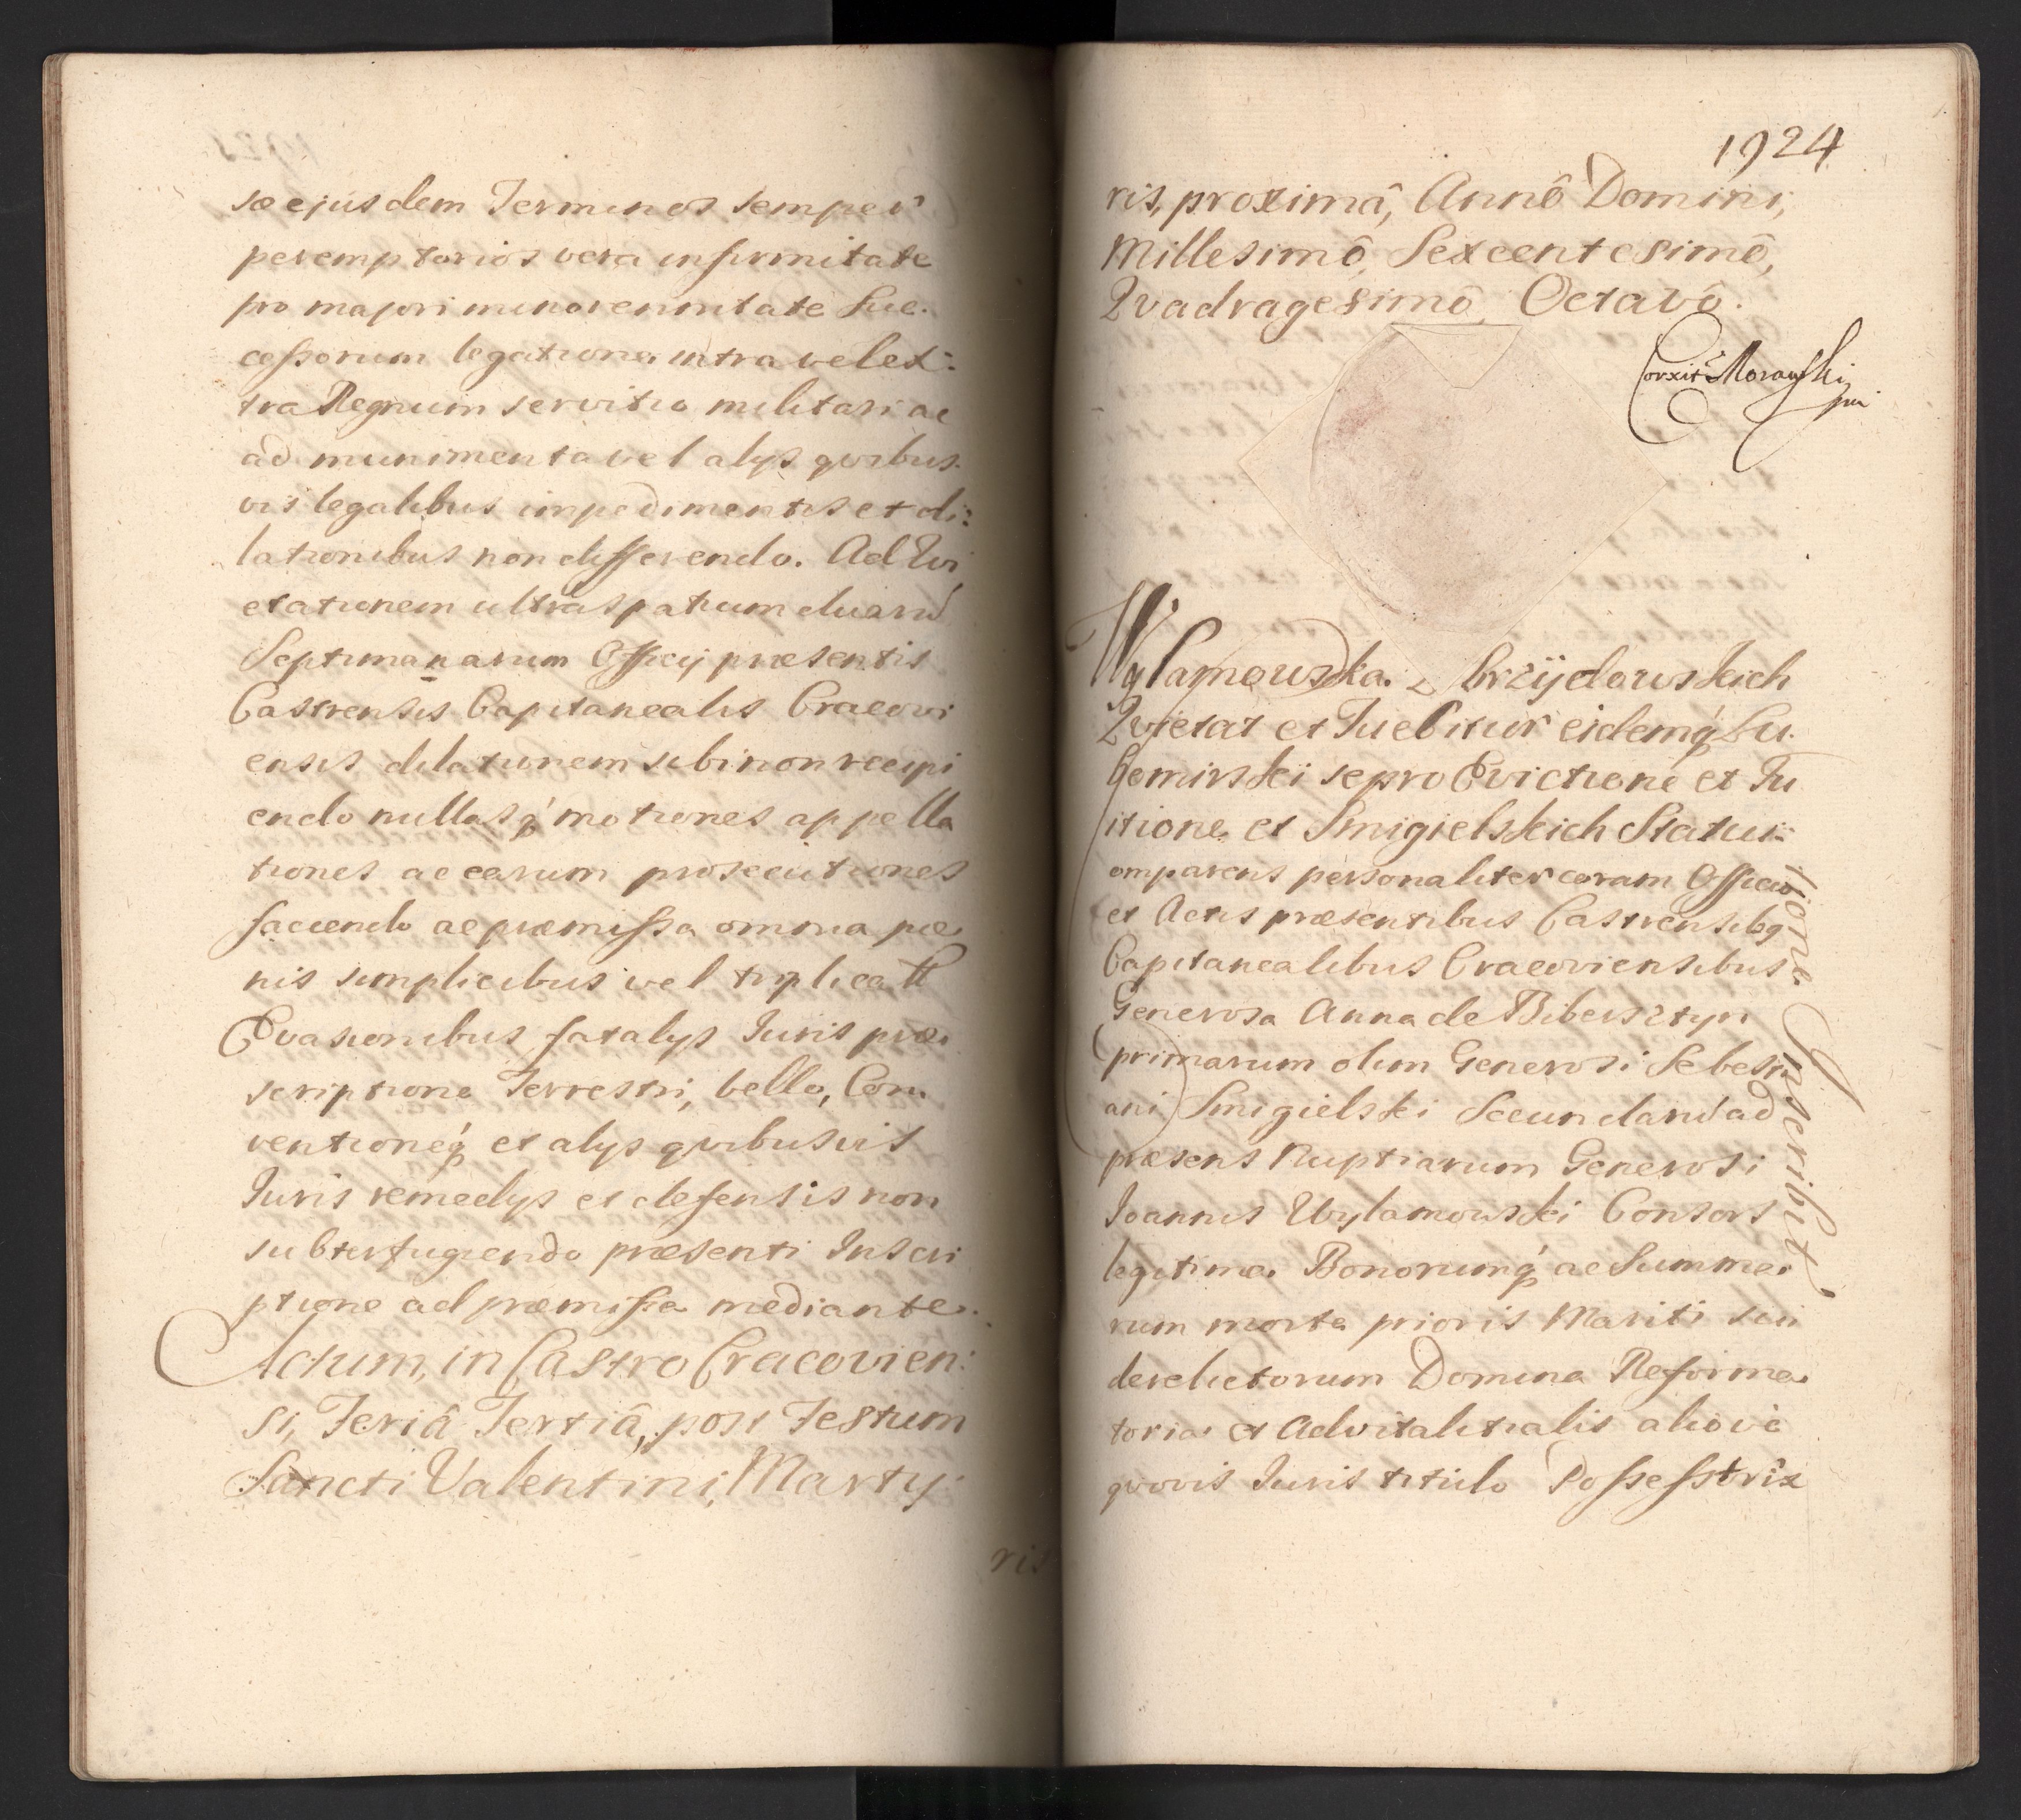 sæ ejusdem Terminos semper
peremptorios vera infirmitate
pro majori minorennitate Suc.
cessorum legatione intra vel ex:
tra Regnum servitio militari ac
ad munimenta vel alys quibus.
vis legalibus impedimentis et di:
lationibus non differendo. Ad Qvi
etationem ultra spatium duarū
Septimanarum Officij præsentis
Castrensis Capitanealis Cracovi
ensis dilationem sibi non recipi
endo nullasq́ motiones appella
tiones ac earum prosecutiones
faciendo ac præmissa omnia pæ
nis simplicibus vel triplicatt
Evasionibus fatalys Iuris præ
scriptione Terrestri, bello, Con.
ventioneq́ et alys quibusvis
Iuris remedys et defensis non
subterfugiendo præsenti Inscri
ptione ad præmissa mediante.
Actum, in Castro Cracovien:
si, Feriâ Tertiâ, post Festum
Sancti Valentini, Marty:
ris
1924
ris, proximâ, Annô Domini,
Millesimô, Sexcentesimô,
Qvadragesimô, Octavô.
Corxit Morawski
mp
Wylamowska z brzÿdowskich
Qvietat et Tuebitur eidemq́ Lu.
bomirski se pro Evictione et Tu
itione et Smigielskich Statui:
tione Inscribit
omparens personaliter coram Officio
et Actis præsentibus Castrensibq
Capitanealibus Cracoviensibus
Generosa Anna de Bibersztyn
primarum olim Generosi Sebesti
ani Smigielski Secundarū ad
præsens Nuptiarum Generosi
Ioannis Wylamowski Consors
legitima Bonorumq́ ac Summa
rum morte prioris Mariti sui
derelictorum Domina Reforma
toria et Advitalitialis aliove
qvovis Iuris titulo Possesstrix